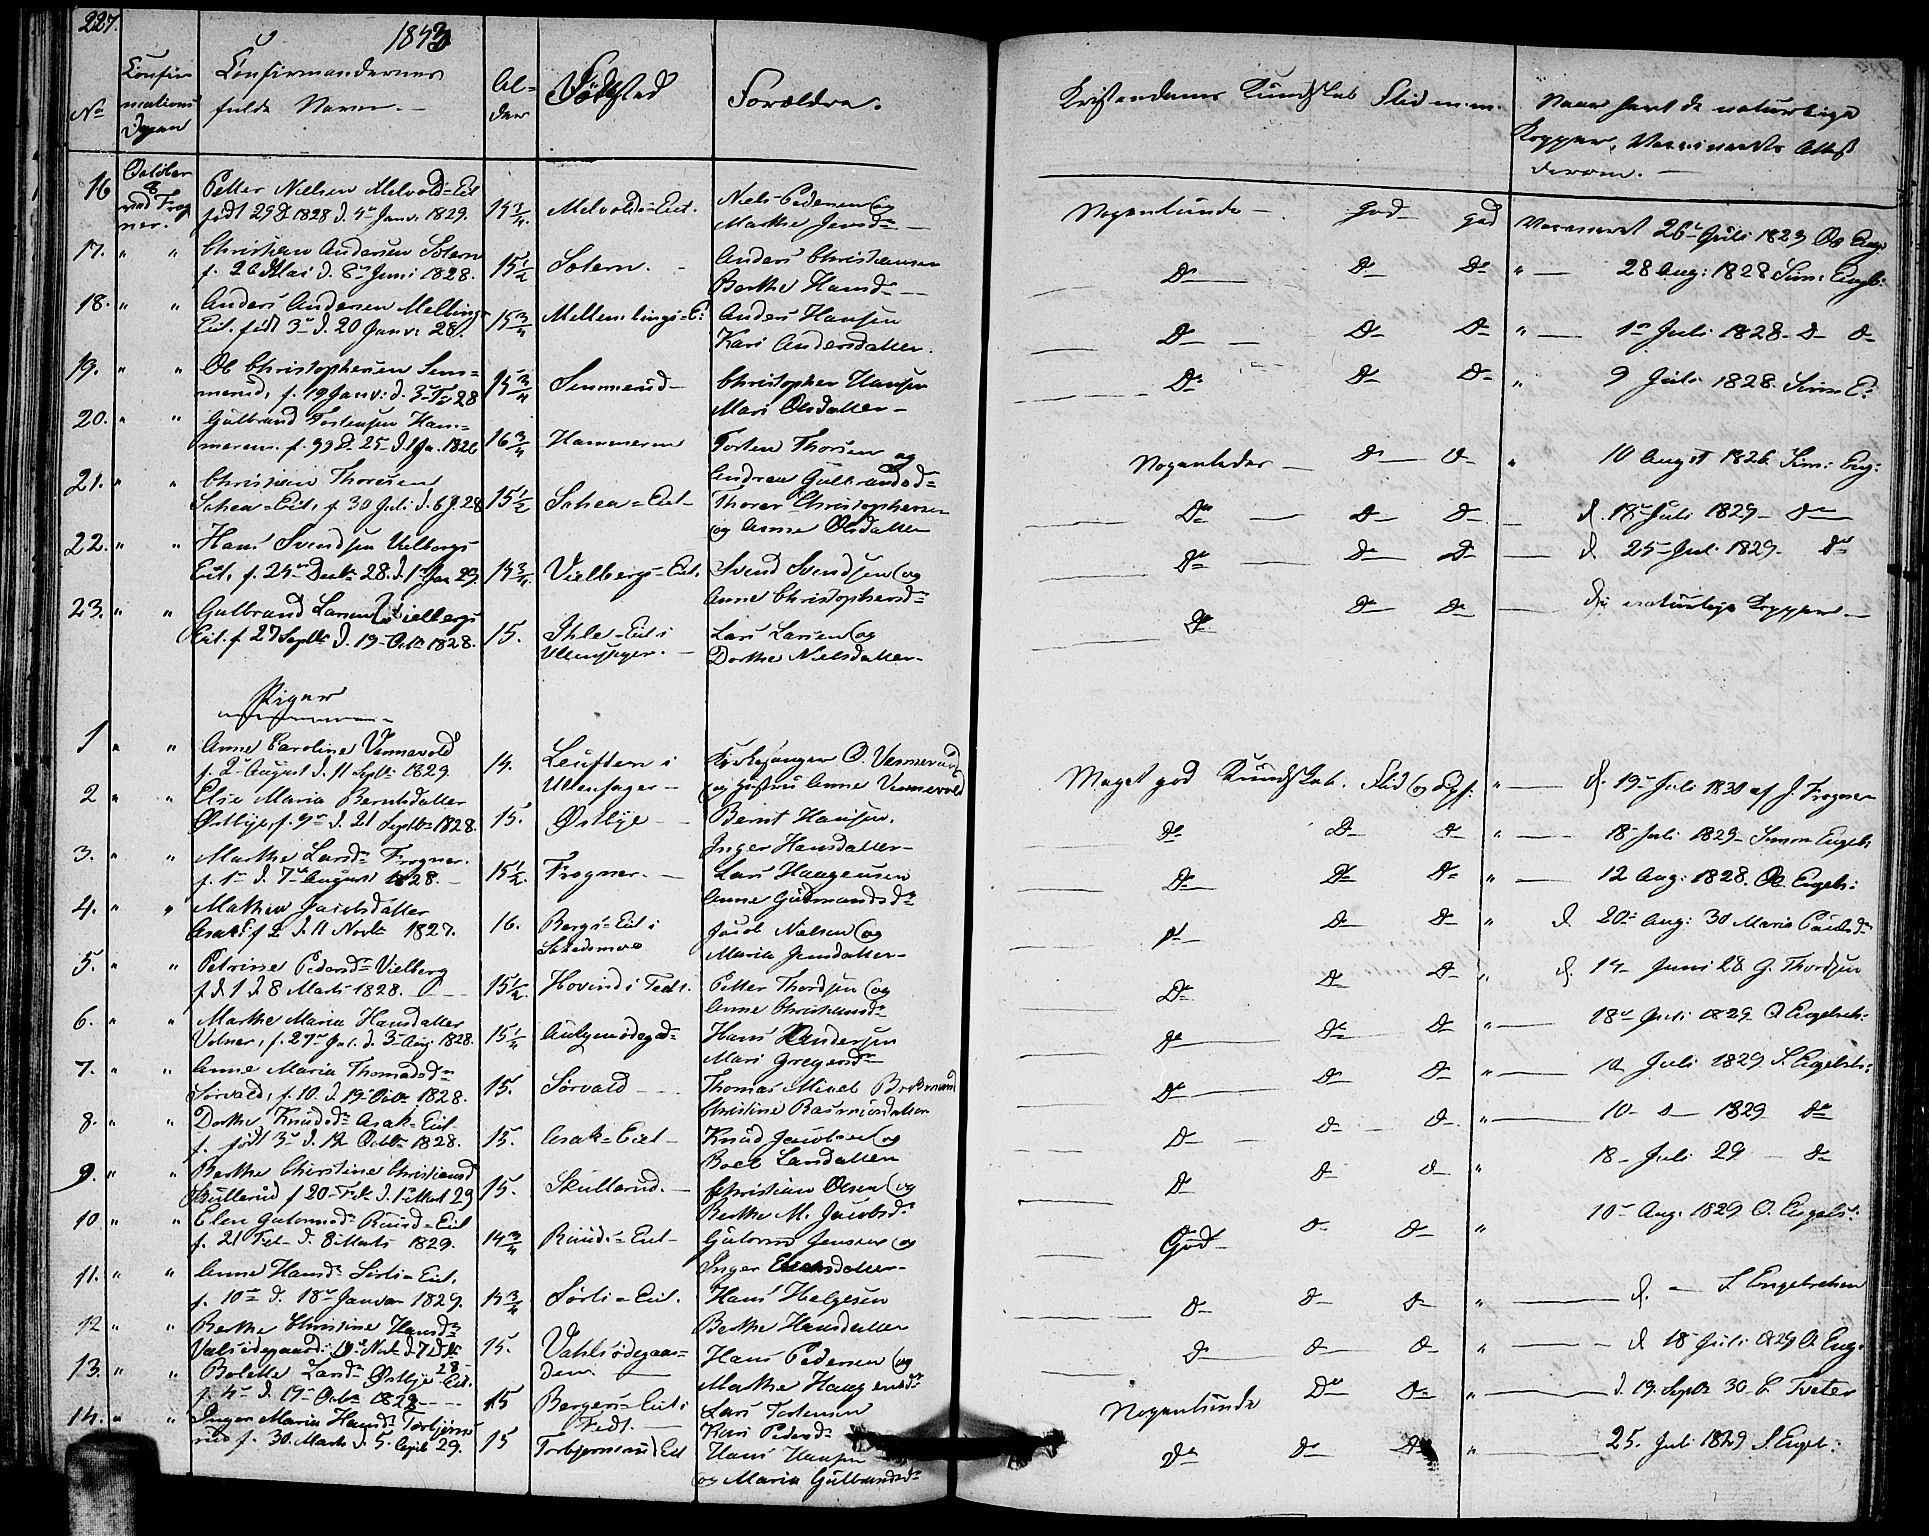 227.
1843
No
Confir
mations
Dagen
Confirmandernes
fulde Navn. —
Al=
der
Fødested
Forældre.
Kristendoms Kundskab Flid m.m.
Naar havt de naturlige
Kopper, Vaccineerte Attest
derom. —
16
October
8
ved Frog
ner.
Petter Nielsen Melvold=Eit
født 29 D 1828 d. 4de Janv. 1829.
14 3/4.
Melvold=Eit.
Niels Pedersen og
Marthe Jensd.
Nogenlunde — god god
Vaccineret 26de Juli 1829 Os Eng.
17. " "
Christian Andersen Solem
f. 26 Mai d. 8de Juni 1828.
15 1/2
Solem. —
Anders Christiansen
Berthe Hansd. —
Do Do Do
" — 28 Aug: 1828 Sim: Engb:
18. " "
Anders Andersen Mellings
Eit. født 3de d. 20 Janv: 28.
15 3/4
Mellemlings=E:
Anders Hansen
Kari Andersdatter.
Do Do Do
" — 1ste Juli 1828. D D
19. " "
Ole Christophersen Sem=
merud, f. 19 Janv: d. 3 Fe 28
15 3/4
Semmerud —
Christopher Hansen
Mari Olsdatter —
Do Do Do
" 9 Juli 1828. Sim E:
20. " "
Gulbrand Tostensen Ham=
meren. f. 29 D. 25 d. 1 Ja. 1826
16 3/4
Hammeren
Torsten Thorsen og
Andrea Gulbrandsd=
Nogenledes — Do Do
" 10 August 1826. Sim: Eng:
21. " "
Christian Thoresen
Sohea=Eit, f. 30 Juli d. 6 J. 28
15 1/2
Sohea=Eit —
Thorer Christophersen
og Anne Olsdatter
Do Do Do
d. 18 Juli 1829 — Do
22. " "
Hans Svendsen Vielbergs
Eit, f. 24de Decbr 28. d. 1 Jan 29.
14 3/4.
Vielbergs=Eit.
Svend Svendsen og
Anne Christophersd=
Do Do Do
d. 25 Juli 1829. Do
23. " "
Gulbrand Larsen Vielbergs
Eit. f. 27 Septb d. 19 Octb 1828.
15.
Ihle=Eit i
Ullensager. —
Lars Larsen og
Dorthe Nielsdatter —
Do Do Do
De naturlige Kopper —
Piger
1 " "
Anne Caroline Vennevold
f. 2 August d. 11 Septb: 1829.
14.
Leuften i
Ullensager —
Kirkesanger O. Vennevold
og Hustru Anne Vennevold
Meget god Kundskab. Flid og Opf:
" — d. 19 Juli 1830 af J. Frogner
2 " "
Else Maria Berntsdatter
Østbye f. 9de d. 21 Septb 1828.
15.
Østbye —
Bernt Hansen.
Inger Hansdatter —
Do Do Do
" — 18 Juli 1829 — Simon Engeb.
3. " "
Marthe Larsd. Frogner.
f. 1ste d. 7de August 1828. —
15 1/2.
Frogner. —
Lars Haagensen
Anne Gudmundsd.
Do Do Do
" — 12 Aug: 1828. Os Engeb:
4. " "
Mathea Jacobsdatter
Asak=E: f. 2 d. 11 Novb 1827.
16.
Bergs=Eit i
Skedsmoe
Jacob Nielsen og
Maria Jensdatter —
Do Do Do
" d 20de Aug: 30 Maria Paulsd.
5. " "
Petrine Pedersd. Vielberg
f. d 1 d. 8 Marts 1828. —
15 1/2.
Hovind i Fedt.
Petter Thordsen og
Anne Christiansd.
Do Do Do
" d. 14 Juni 28. G. Thordsen
6. " "
Marthe Maria Hansdatter
Volner, f. 27de Jul. d. 3 Aug 1828.
15 1/4
Aulgimødegd=
Hans Andersen
Mari Gregersd.
Do Do Do
" — 18de Juli 1829 O Engebreth:
7. " "
Anne Maria Thomasd.
Sørvald, f. 10. d. 19 Octb 1828.
15.
Sørvald —
Thomas Mikel Brobrand
Christine Rasmusdatter
Do Do Do
" — 18 Juli 1829 S. Engebreth:
8. " "
Dorthe Knudsd. Asak=Eit
f. født 3de d. 12 Octb 1828.
15.
Asak=Eit —
Knud Jacobsen og
Boel Larsdatter
Do Do Do
" — 10 — D — 1829 Do
9. " "
Berthe Christine Christiansd
Skullerud f. 20 Feb. d. 1ste Mart 29
15.
Skullerud. —
Christian Olsen og
Berthe M. Jacobsd.
Do Do Do
" 18 Juli 29 — Do
10 " "
Elen Gutormsd. Ruud=Eit
f. 21 Feb d. 8 Marts 1829.
14 3/4
Ruuds=Eit —
Gutorm Jensen og
Inger Larsdatter —
God Do Do
" 10de Aug. 1829 O. Engels:
11. " "
Anne Hansd. Sørli=Eit.
f. 10de d. 18de Januar 1829.
14 3/4
Sørli=Eit.
Hans Helgesen
Berthe Hansdatter
Do Do Do
" — d. — S. Engebrethsen
12 " "
Berthe Christine Hansd.
Valsødegaard: 19de Novb d. 7 Decb
28
15.
Vahlsødegaar=
den. —
Hans Pedersen og
Marthe Haagensd.
Do Do Do
" — d 18 Juli 1829 O. Eng.
13. " "
Bolette Larsd. Østbye=Eit.
f. 4de d. 19 Octb 1828 —
15
Berger=Eit i
Fedt. —
Lars Torstensen
Kari Pedersd.
Nogenlunde Do Do
" — d. 19. Septb 30. C. Tveter
14. " "
Inger Maria Hansd. Torbjørns
rud f. 30. Marts d. 5. April 29.
15
Torbjørnsrud Eit
Hans Hansen
og Maria Gulbrandsd.
Do Do Do
" — 25. Juli 1829 S. Engeb: